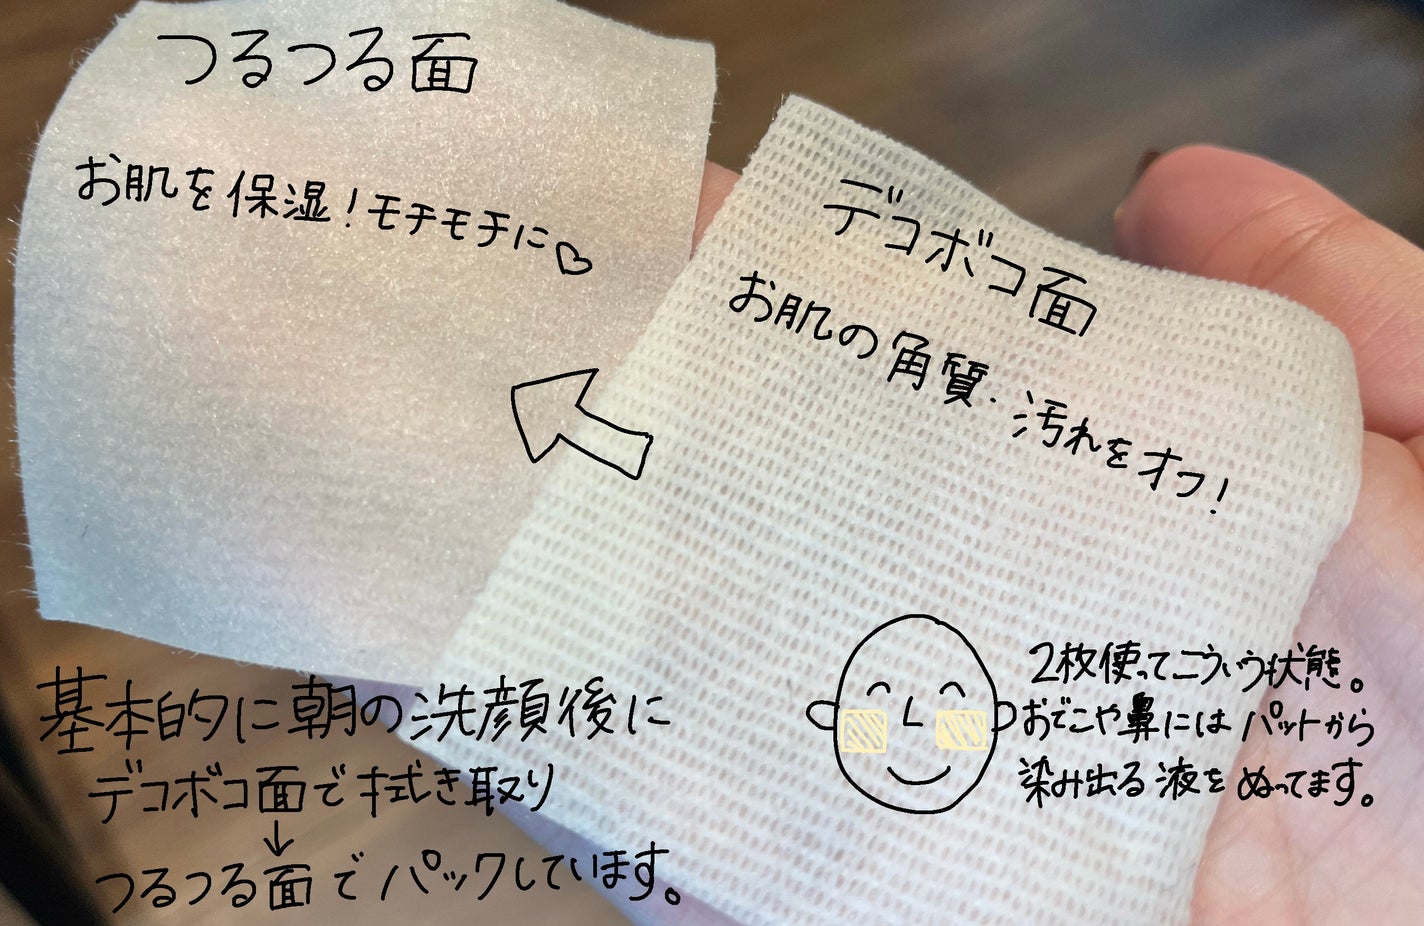 つるつる面
お肌を保湿！モチモチに♡
デコボコ面
お肌の角質・汚れをオフ！
基本的に朝の洗顔後に
デコボコ面で拭き取り
↓
つるつる面でパックしています。
2枚使ってこういう状態。
おでこや鼻にはパットから
染み出る液をぬってます。